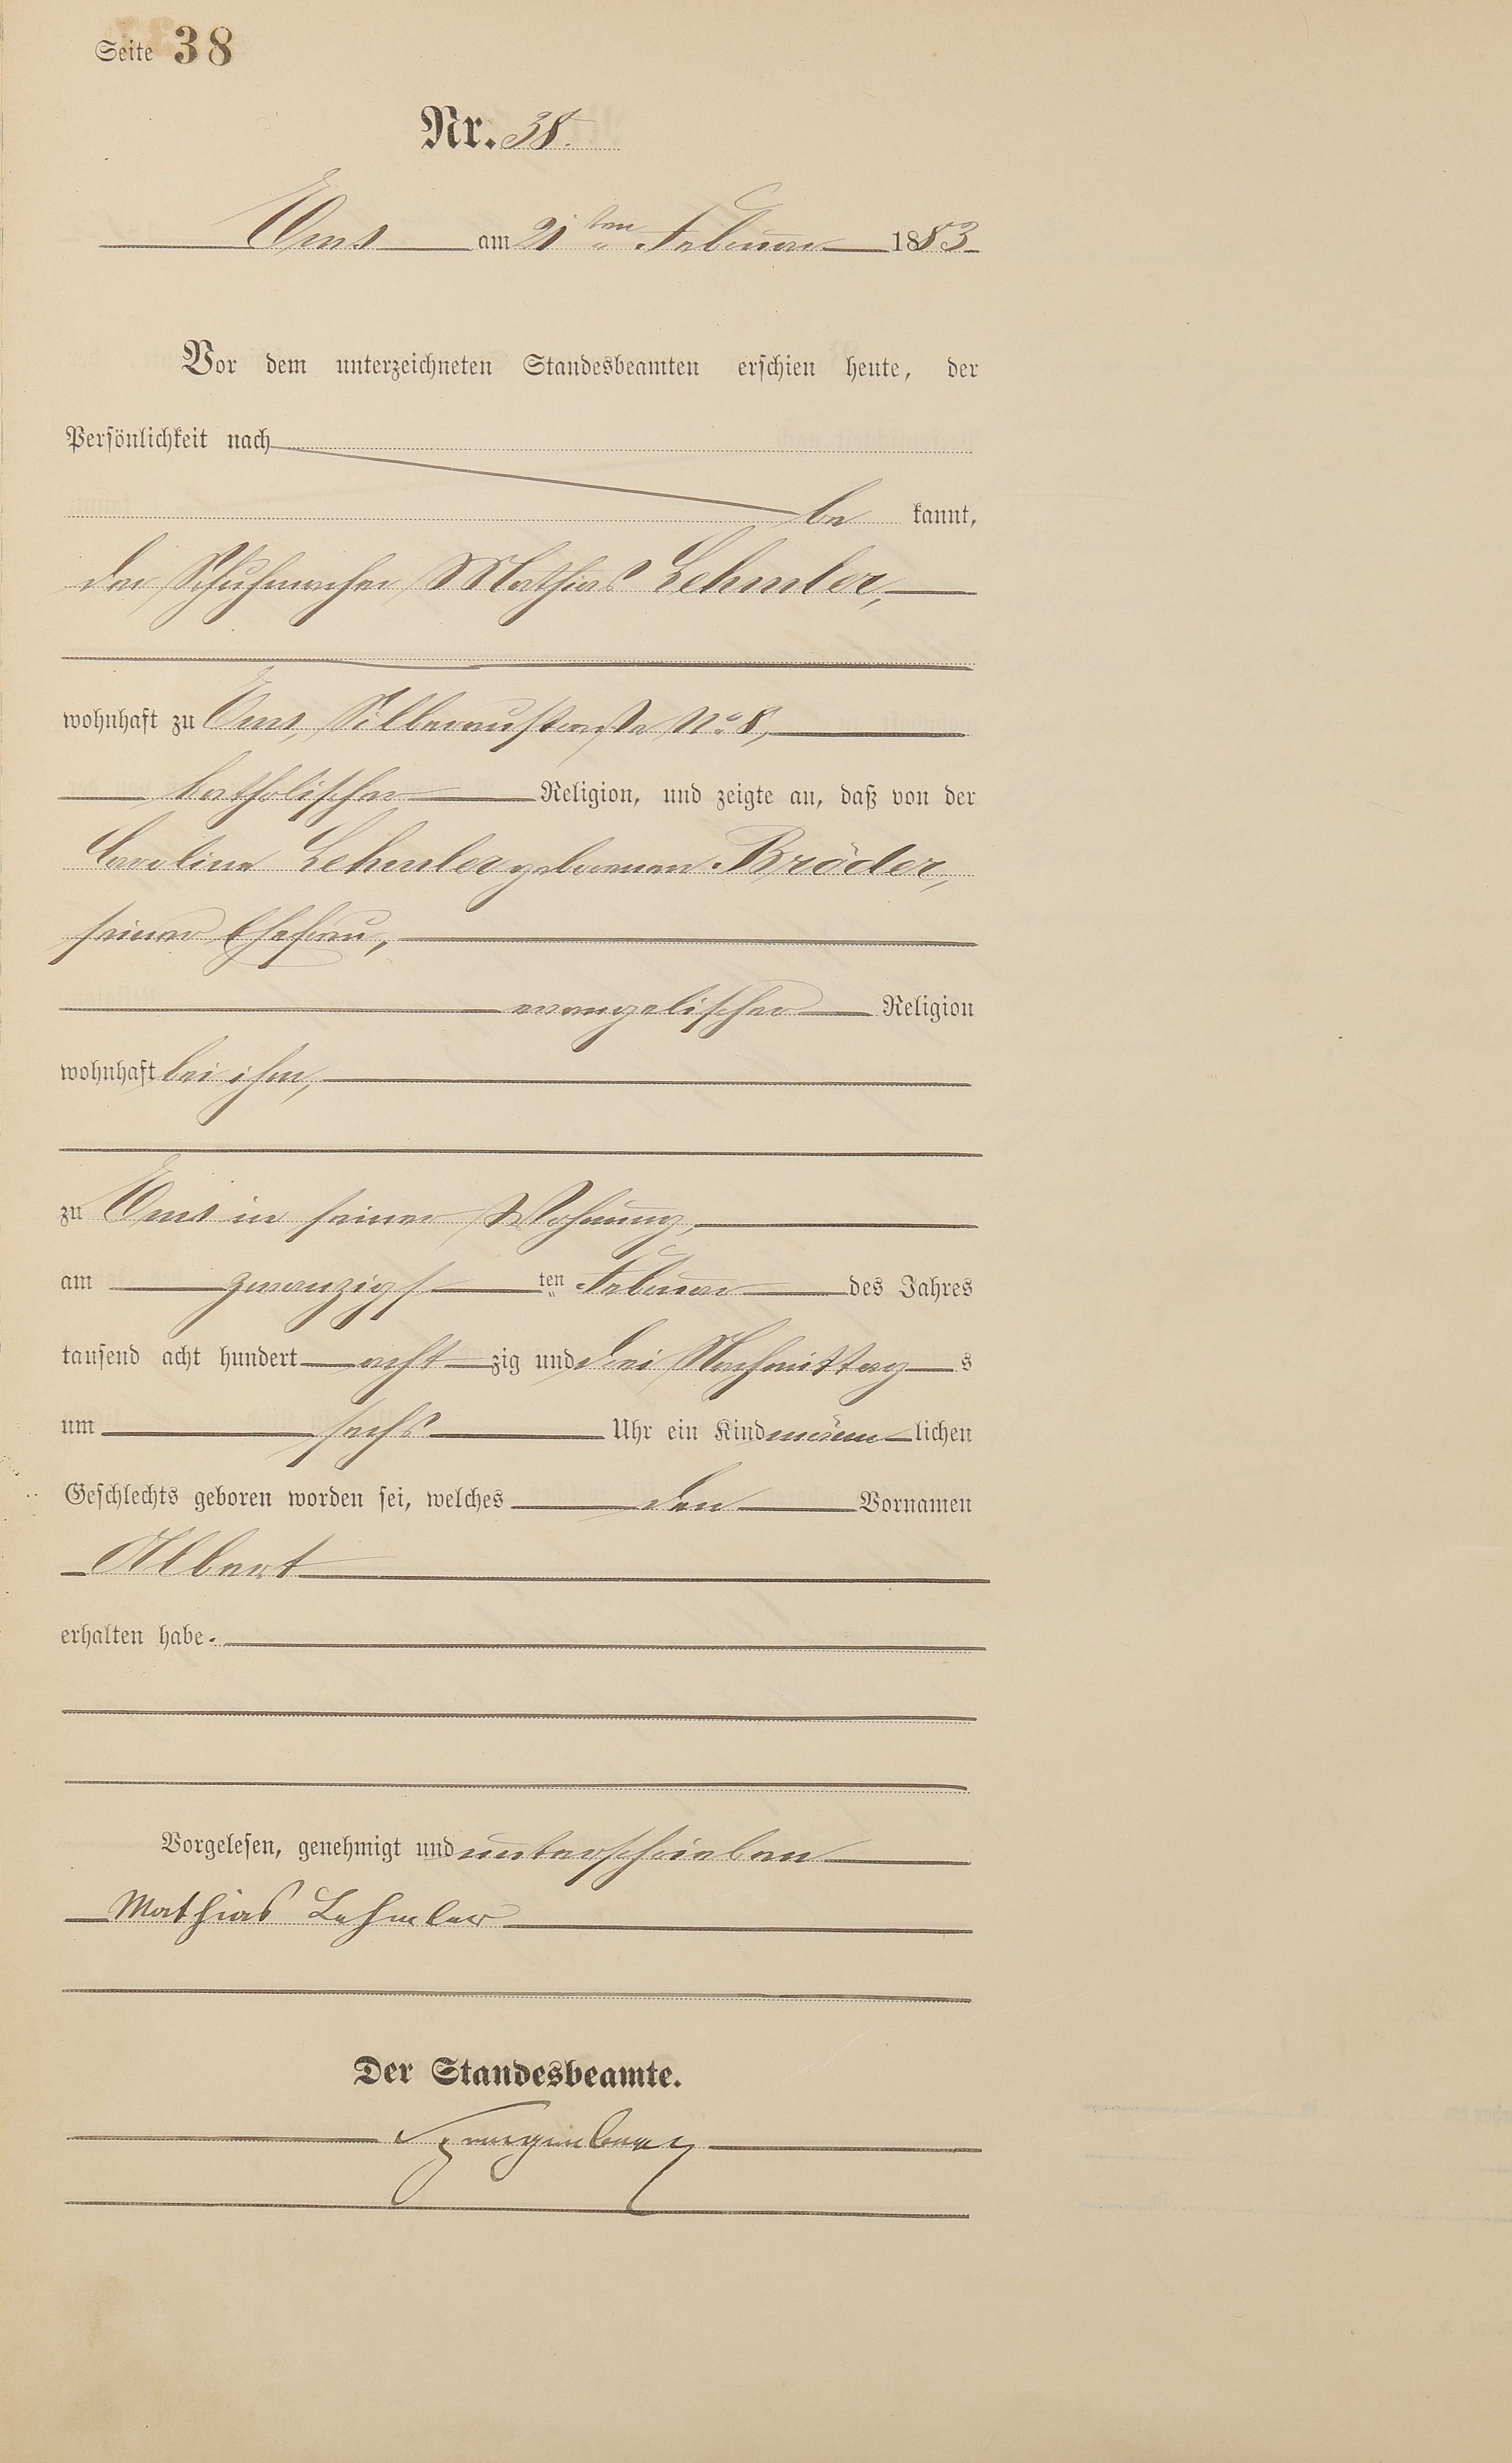 Seite 38
Nr. 38.
Ems am 21ten Februar 1883
Vor dem unterzeichneten Standesbeamten erschien heute, der
Persönlichkeit nach
be kannt,
der Schuhmacher Mathias Lehmler,
wohnhaft zu Ems, Silberaustraße No. 8,
katholischer Religion, und zeigte an, daß von der
Caroline Lehmler geborenen Bröder,
seiner Ehefrau,
evangelischer Religion
wohnhaft bei ihm,
zu Ems in seiner Wohnung,
am zwanzigsten Februar des Jahres
tausend acht hundert acht zig und drei Nachmittag s
um sechs Uhr ein Kind männ lichen
Geschlechts geboren worden sei, welches den Vornamen
Albert
erhalten habe.
Vorgelesen, genehmigt und unterschrieben
Mathias Lehmler
Der Standesbeamte.